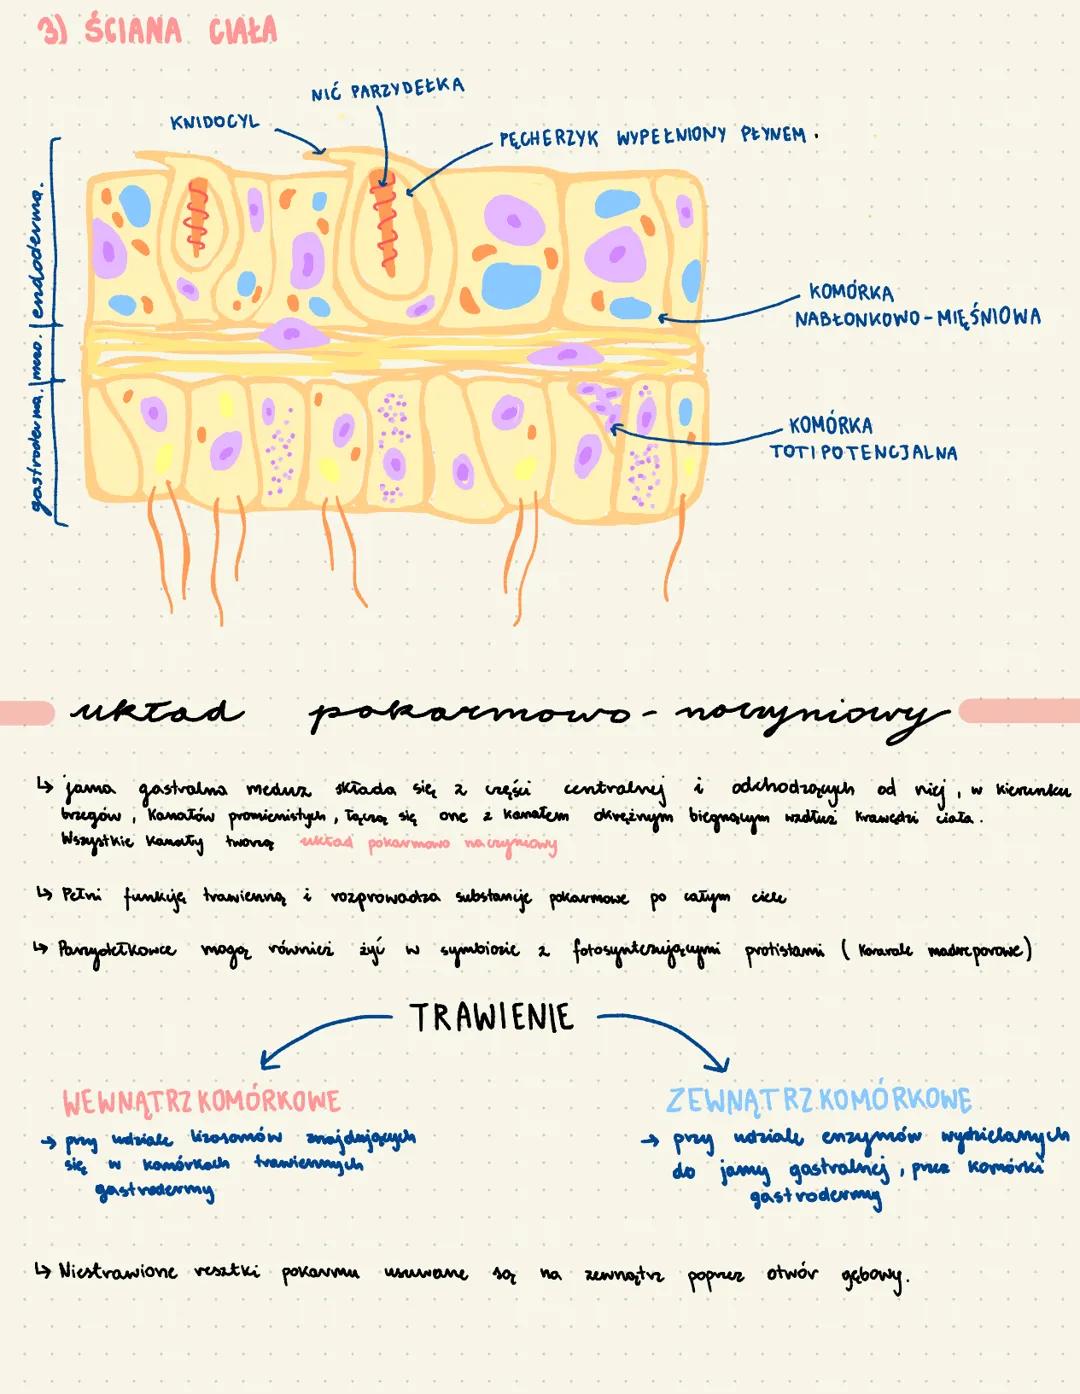 3) ŚCIANA CIAŁA
NIĆ PARZYDEŁKA
KNIDOCYL
PĘCHERZYK WYPEŁNIONY PŁYNEM.
endoderma.
mezo.
gastroderma.
KOMÓRKA
NABŁONKOWO-MIĘŚNIOWA
KOMÓRKA
TOTIPOTENCJALNA
układ pokarmowo-naczyniowy
↳ jama gastralna meduz składa się z części centralnej i odchodzących od niej, w kierunku
brzegów, kanałów promienistych, łączą się one z kanałem okrężnym biegnącym wzdłuż krawędzi ciała.
Wszystkie kanały tworzą układ pokarmowo naczyniowy
↳ Pełni funkcję trawienną i rozprowadza substancje pokarmowe po całym ciele
↳ Parzydełkowce mogą również żyć w symbiozie z fotosyntezującymi protistami (Koralale madreporowe)
TRAWIENIE
WEWNĄTRZKOMÓRKOWE
→ przy udziale lizosomów znajdujących
się w komórkach trawiennych
gastrodermy
ZEWNĄTRZKOMÓRKOWE
→ przy udziale enzymów wydzielanych
do jamy gastralnej, przez komórki
gastrodermy
↳ Niestrawione resztki pokarmu usuwane są na zewnątrz poprzez otwór gębowy.